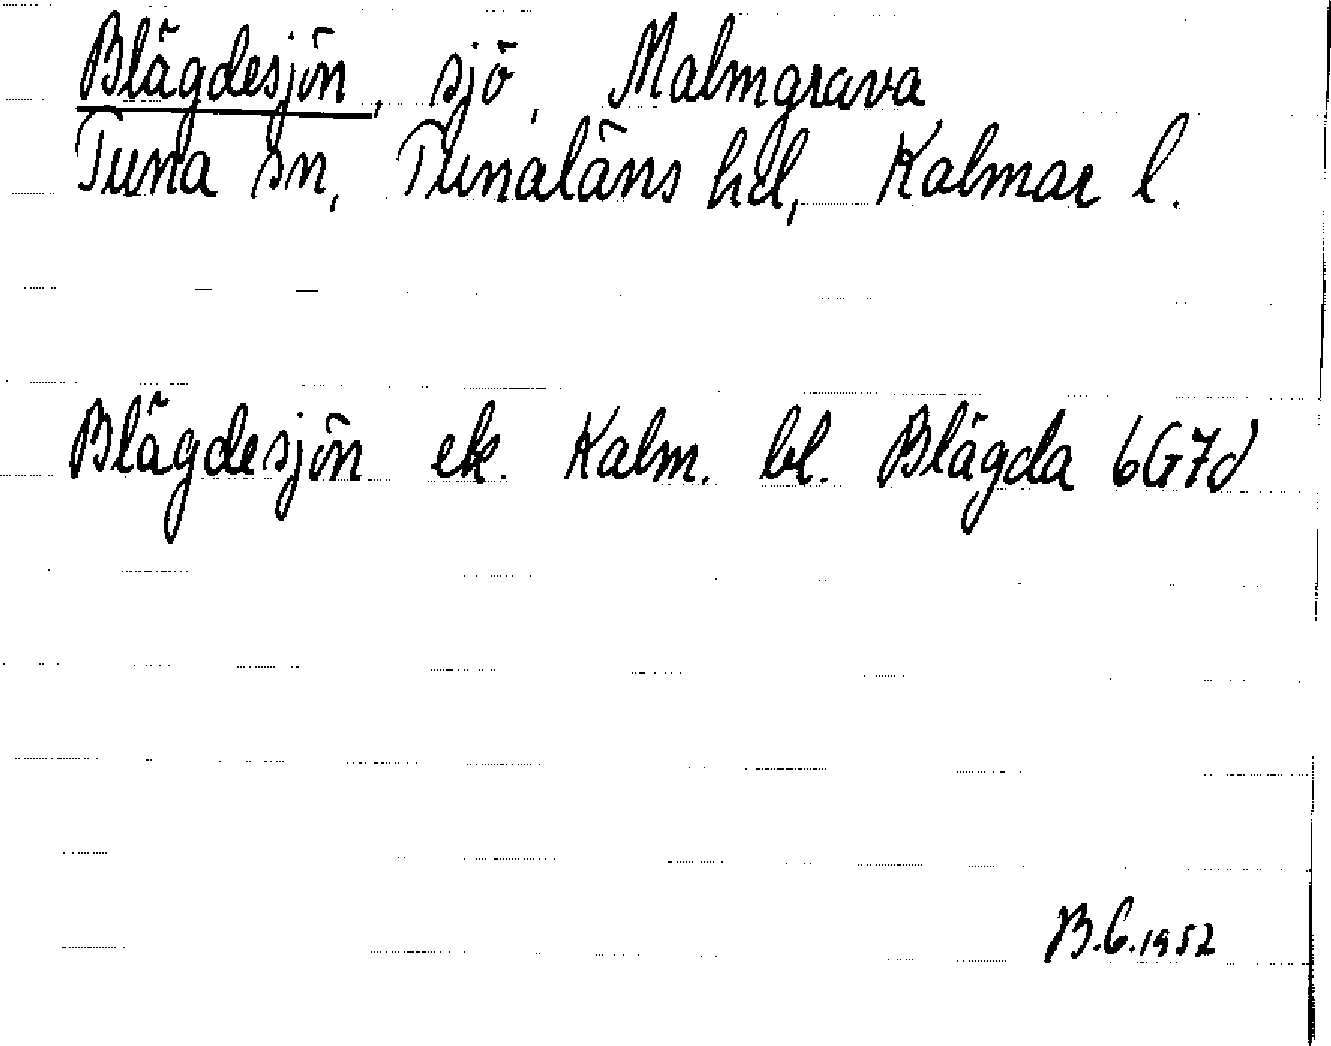 Blägdesjön, sjö, Malmgrava
Tuna sn, Tunaläns hd, Kalmar l.
Blägdesjön ek. Kalm. bl. Blägda 6G7d
B.C.1952